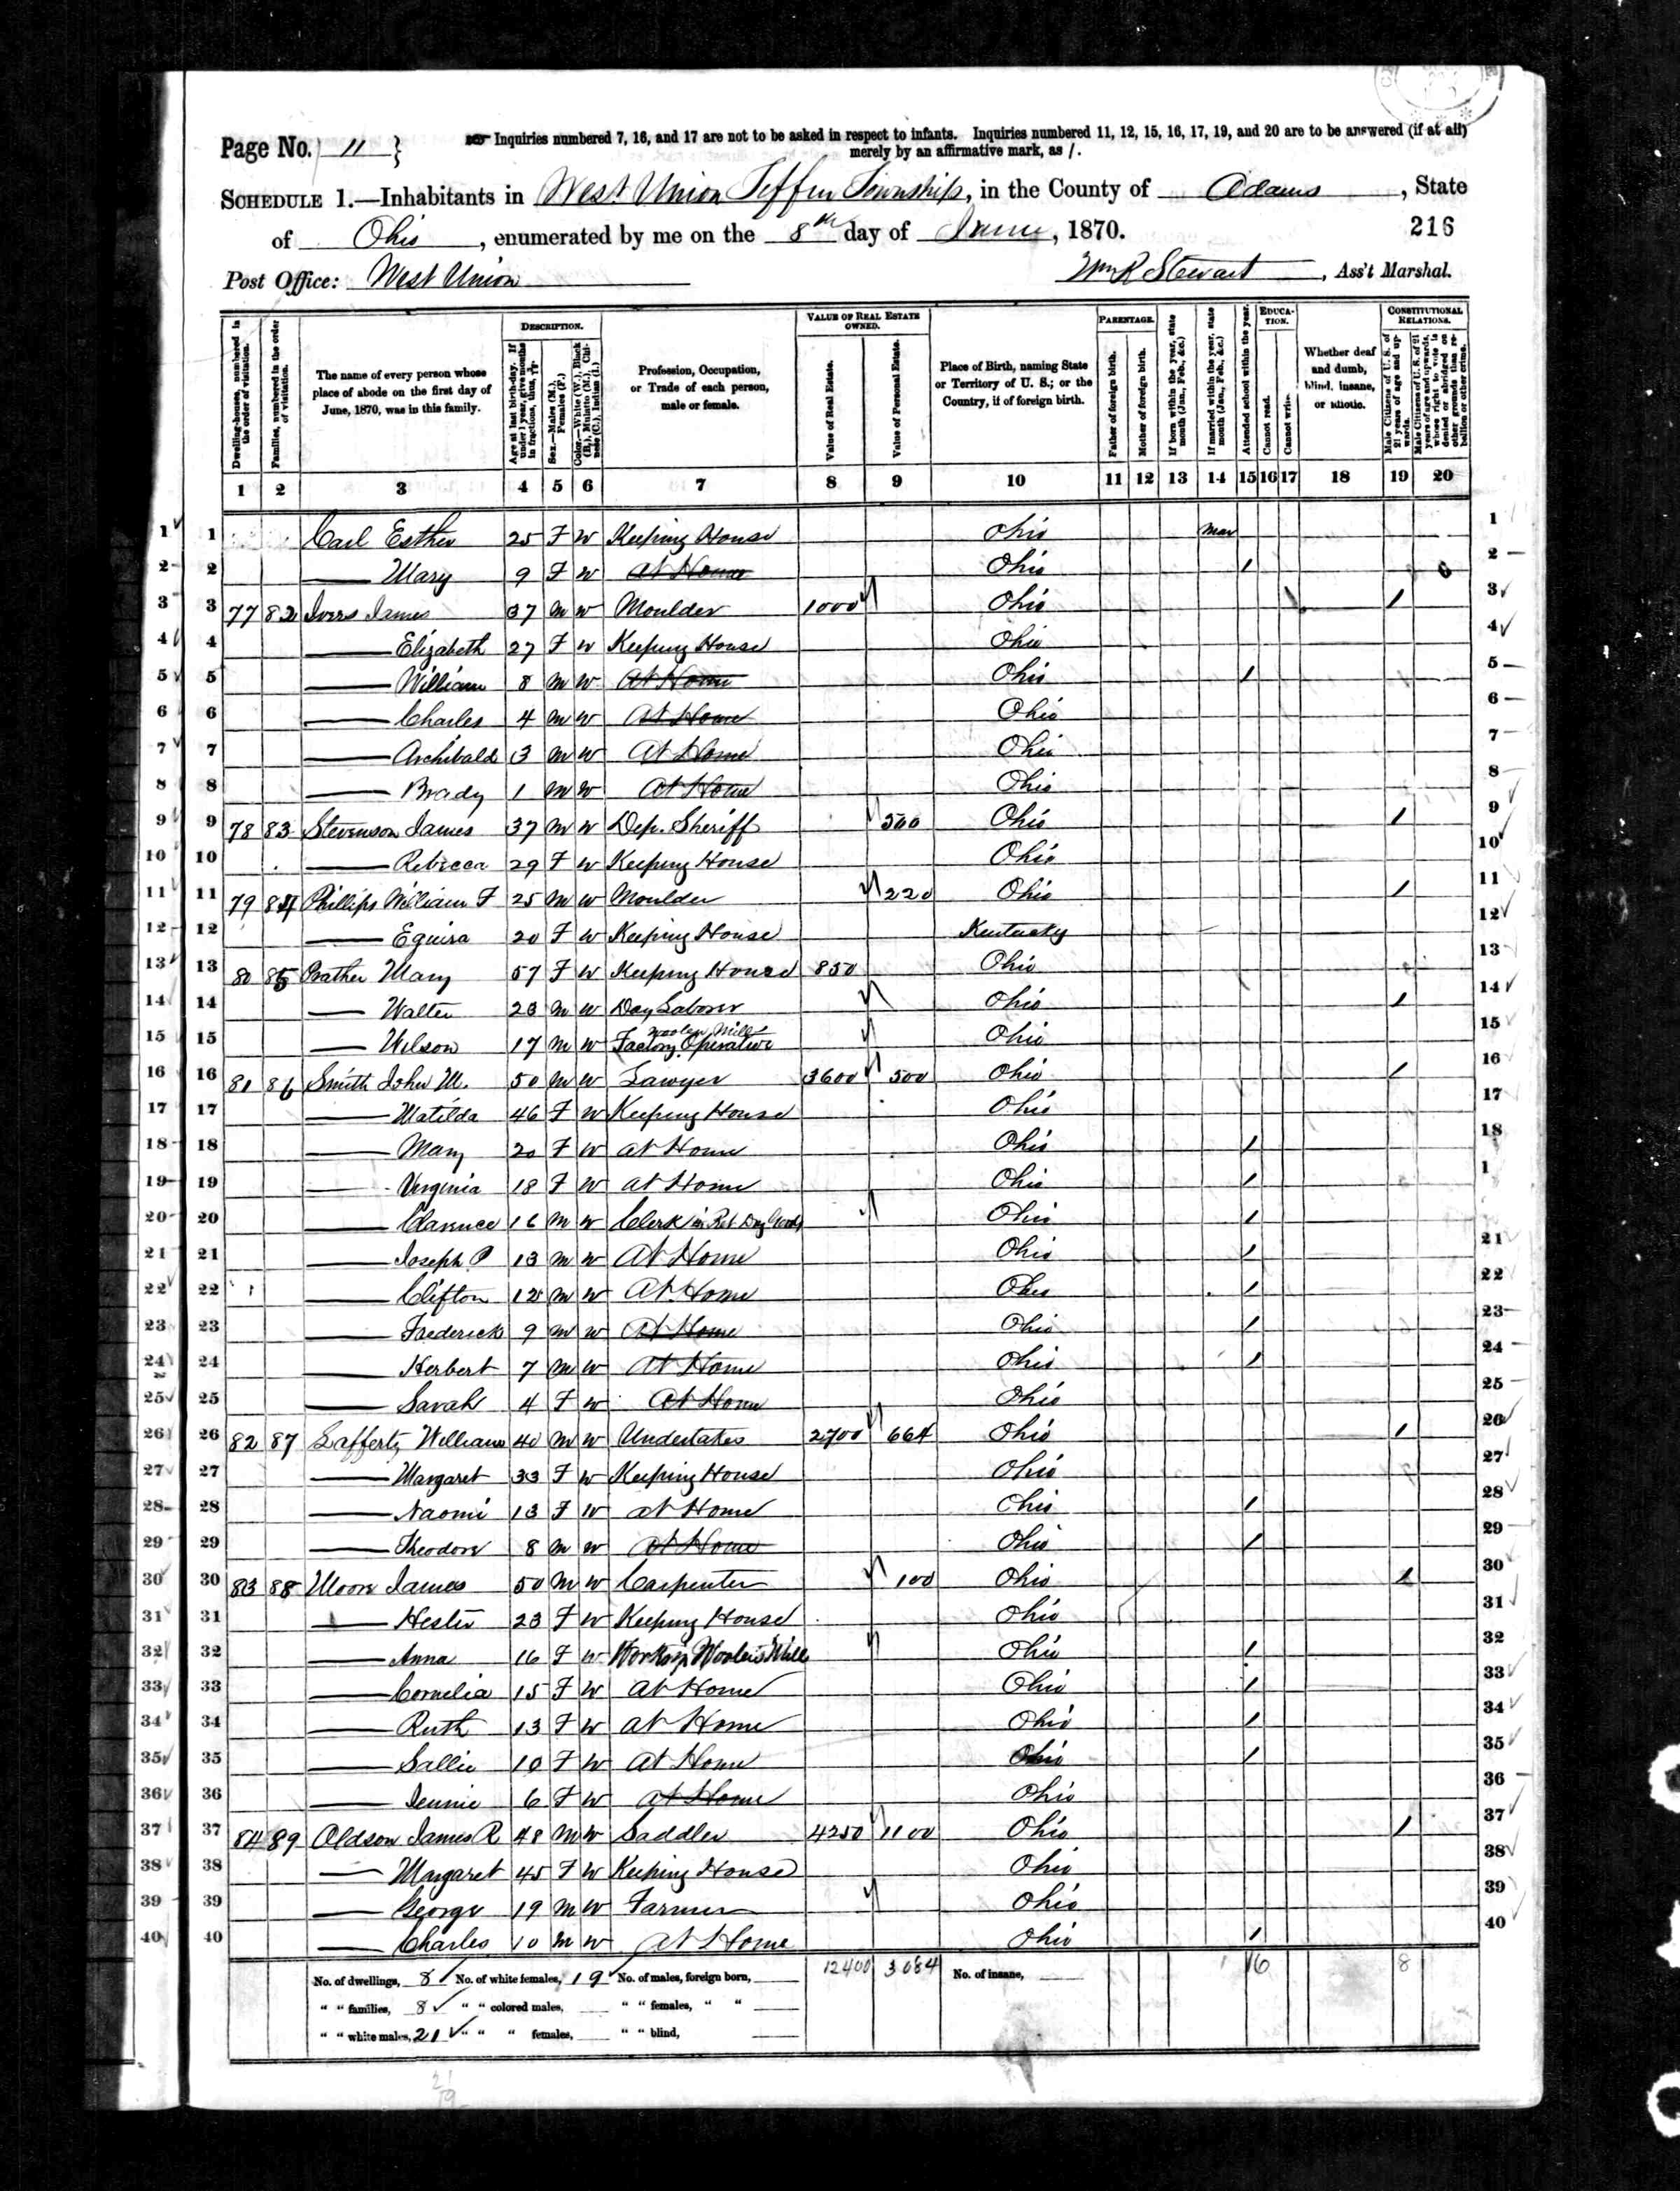 Page No. 11 }
Inquiries numbered 7, 16, and 17 are not to be asked in respect to infants. Inquiries numbered 11, 12, 15, 16, 17, 19, and 20 are to be answered (if at all) merely by an affirmative mark, as /.
SCHEDULE 1.—Inhabitants in West Union Tiffin Township, in the County of Adams, State
of Ohio, enumerated by me on the 8th day of June, 1870. 216
Post Office: West Union Wm R Stewart, Ass't Marshal.
DESCRIPTION. VALUE OF REAL ESTATE OWNED. PARENTAGE. EDUCATION. CONSTITUTIONAL RELATIONS.
Dwelling-houses, numbered in the order of visitation.
Families, numbered in the order of visitation.
The name of every person whose place of abode on the first day of June, 1870, was in this family.
Age at last birth-day. If under 1 year, give months in fractions, thus,
Sex.—Males (M.), Females (F.)
Color.—White (W.), Black (B.), Mulatto (M.), Chinese (C.), Indian (I.)
Profession, Occupation, or Trade of each person, male or female.
Value of Real Estate.
Value of Personal Estate.
Place of Birth, naming State or Territory of U. S.; or the Country, if of foreign birth.
Father of foreign birth.
Mother of foreign birth.
If born within the year, state month (Jan., Feb., &c.)
If married within the year, state month (Jan., Feb., &c.)
Attended school within the year.
Cannot read.
Cannot write.
Whether deaf and dumb, blind, insane, or idiotic.
Male Citizens of U. S. of 21 years of age and upwards.
Male Citizens of U. S. of 21 years of age and upwards, whose right to vote is denied or abridged on other grounds than rebellion or other crime.
1 2 3 4 5 6 7 8 9 10 11 12 13 14 15 16 17 18 19 20
1 1 Carl Esther 25 F W Keeping House Ohio Mar 1
2 2 Mary 9 F W At Home Ohio / 2
3 3 77 82 Ivers James 37 M W Moulder 1000 Ohio / 3
4 4 Elizabeth 27 F W Keeping House Ohio 4
5 5 William 8 M W At Home Ohio / 5
6 6 Charles 4 M W At Home Ohio 6
7 7 Archibald 3 M W At Home Ohio 7
8 8 Brady 1 M W At Home Ohio 8
9 9 78 83 Stevenson James 37 M W Dep. Sheriff 500 Ohio / 9
10 10 Rebecca 29 F W Keeping House Ohio 10
11 11 79 84 Phillips William F 25 M W Moulder 220 Ohio / 11
12 12 20 F W Keeping House Kentucky 12
13 13 80 85 Prather Mary 57 F W Keeping House 850 Ohio 13
14 14 Walter 23 M W Day Laborer Ohio / 14
15 15 Wilson 17 M W Factory Operative Woolen Mills Ohio 15
16 16 81 86 Smith John M. 50 M W Lawyer 3600 500 Ohio / 16
17 17 Matilda 46 F W Keeping House Ohio 17
18 18 Mary 20 F W At Home Ohio / 18
19 19 Virginia 18 F W At Home Ohio / 1
20 20 Clarence 16 M W Clerk in Ret Dry Goods Ohio /
21 21 Joseph P 13 M W At Home Ohio / 21
22 22 Clifton 12 M W At Home Ohio / 22
23 23 Frederick 9 M W At Home Ohio / 23
24 24 Herbert 7 M W At Home Ohio / 24
25 25 Sarah 4 F W At Home Ohio 25
26 26 82 87 Lafferty William 40 M W Undertaker 2700 664 Ohio / 26
27 27 Margaret 33 F W Keeping House Ohio 27
28 28 Naomi 13 F W At Home Ohio / 28
29 29 Theodore 8 M W At Home Ohio / 29
30 30 83 88 Moore James 50 M W Carpenter 100 Ohio / 30
31 31 Hester 23 F W Keeping House Ohio 31
32 32 Anna 16 F W Works in Woolen Mill Ohio / 32
33 33 Cornelia 15 F W At Home Ohio / 33
34 34 Ruth 13 F W At Home Ohio / 34
35 35 Sallie 10 F W At Home Ohio / 35
36 36 Jennie 6 F W At Home Ohio 36
37 37 84 89 Oldson James R 48 M W Saddler 4250 1100 Ohio / 37
38 38 Margaret 45 F W Keeping House Ohio 38
39 39 George 19 M W Farmer Ohio 39
40 40 Charles 10 M W At Home Ohio / 40
No. of dwellings, 8 No. of white females, 19 No. of males, foreign born, 12400 3084 No. of insane, 16 8
" " families, 8 " " colored males, " " females, " "
" " white males, 21 " " " females, " " blind,
21
19